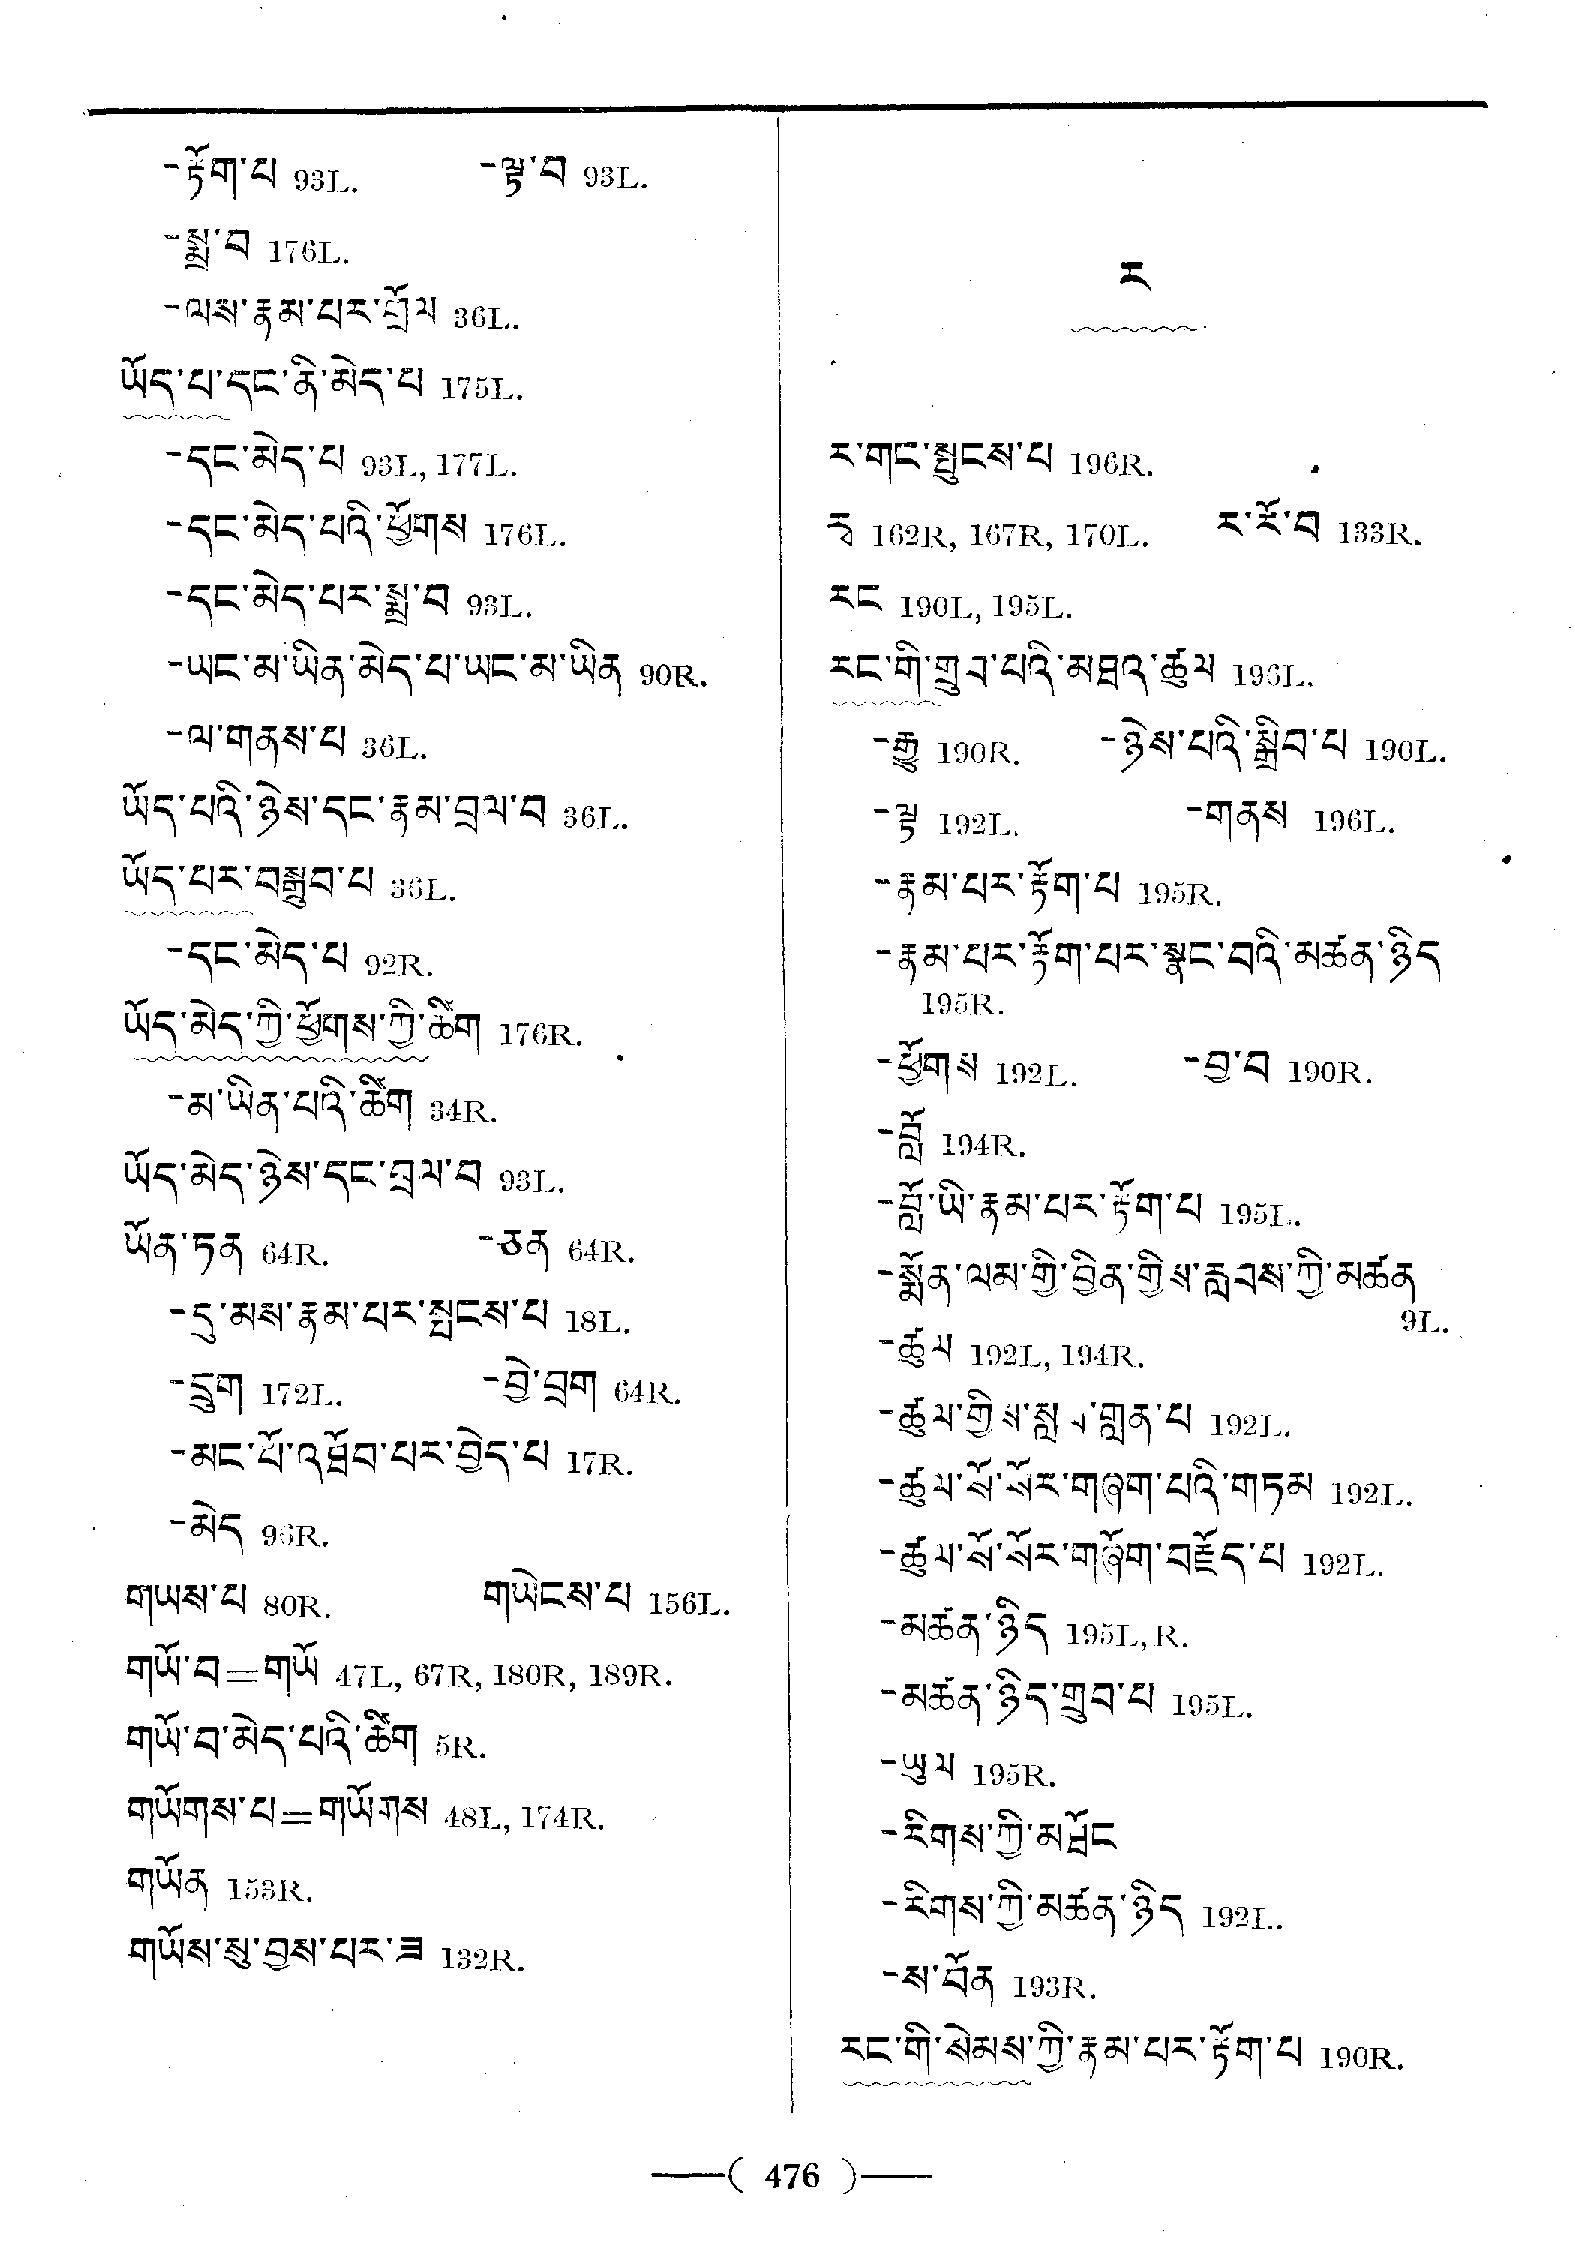 -རྟོག་པ 93L. -ལྟ་བ 93L.
-སྨྲ་བ 176L.
-ལས་རྣམ་པར་གྲོལ 36L.
ཡོད་པ་དང་ནི་མེད་པ 175L.
-དང་མེད་པ 93L, 177L.
-དང་མེད་པའི་ཕྱོགས 176L.
-དང་མེད་པར་སྨྲ་བ 93L.
-ཡང་མ་ཡིན་མེད་པ་ཡང་མ་ཡིན 90R.
-ལ་གནས་པ 36L.
ཡོད་པའི་ཉེས་དང་རྣམ་བྲལ་བ 36L.
ཡོད་པར་བསྒྲུབ་པ 36L.
-དང་མེད་པ 92R.
ཡོད་མེད་ཀྱི་ཕྱོགས་ཀྱི་ཚིག 176R.
-མ་ཡིན་པའི་ཚིག 34R.
ཡོད་མེད་ཉེས་དང་བྲལ་བ 93L.
ཡོན་ཏན 64R. -ཅན 64R.
-དུ་མས་རྣམ་པར་སྤངས་པ 18L.
-དྲུག 172L. -བྱེ་བྲག 64R.
-མང་པོ་འཐོབ་པར་བྱེད་པ 17R.
-མེད 96R.
གཡས་པ 80R. གཡེངས་པ 156L.
གཡོ་བ=གཡོ 47L, 67R, 180R, 189R.
གཡོ་བ་མེད་པའི་ཚིག 5R.
གཡོགས་པ=གཡོགས 48L, 174R.
གཡོན 153R.
གཡོས་སུ་བྱས་པར་ཟ 132R.
ར
ར་གང་སྤུངས་པ 196R.
རྭ 162R, 167R, 170L. ར་རོ་བ 133R.
རང 190L, 195L.
རང་གི་གྲུབ་པའི་མཐའ་ཚུལ 196L.
-རྒྱུ 190R. -ཉེས་པའི་སྒྲིབ་པ 190L.
-ལྟ 192L. -གནས 196L.
-རྣམ་པར་རྟོག་པ 195R.
-རྣམ་པར་རྟོག་པར་སྣང་བའི་མཚན་ཉིད
195R.
-ཕྱོགས 192L. -བྱ་བ 190R.
-བློ 194R.
-བློ་ཡི་རྣམ་པར་རྟོག་པ 195L.
-སྨོན་ལམ་གྱི་བྱིན་གྱིས་རླབས་ཀྱི་མཚན
9L.
-ཚུལ 192L, 194R.
-ཚུལ་གྱིས་སླ གླན་པ 192L.
-ཚུལ་སོ་སོར་གཞག་པའི་གཏམ 192L.
-ཚུལ་སོ་སོར་གཞོག་བརྗོད་པ 192L.
-མཚན་ཉིད 195L, R.
-མཚན་ཉིད་གྲུབ་པ 195L.
-ཡུལ 195R.
-རིགས་ཀྱི་མཐོང
-རིགས་ཀྱི་མཚན་ཉིད 192L.
-ས་བོན 193R.
རང་གི་སེམས་ཀྱི་རྣམ་པར་རྟོག་པ 190R.
( 476 )